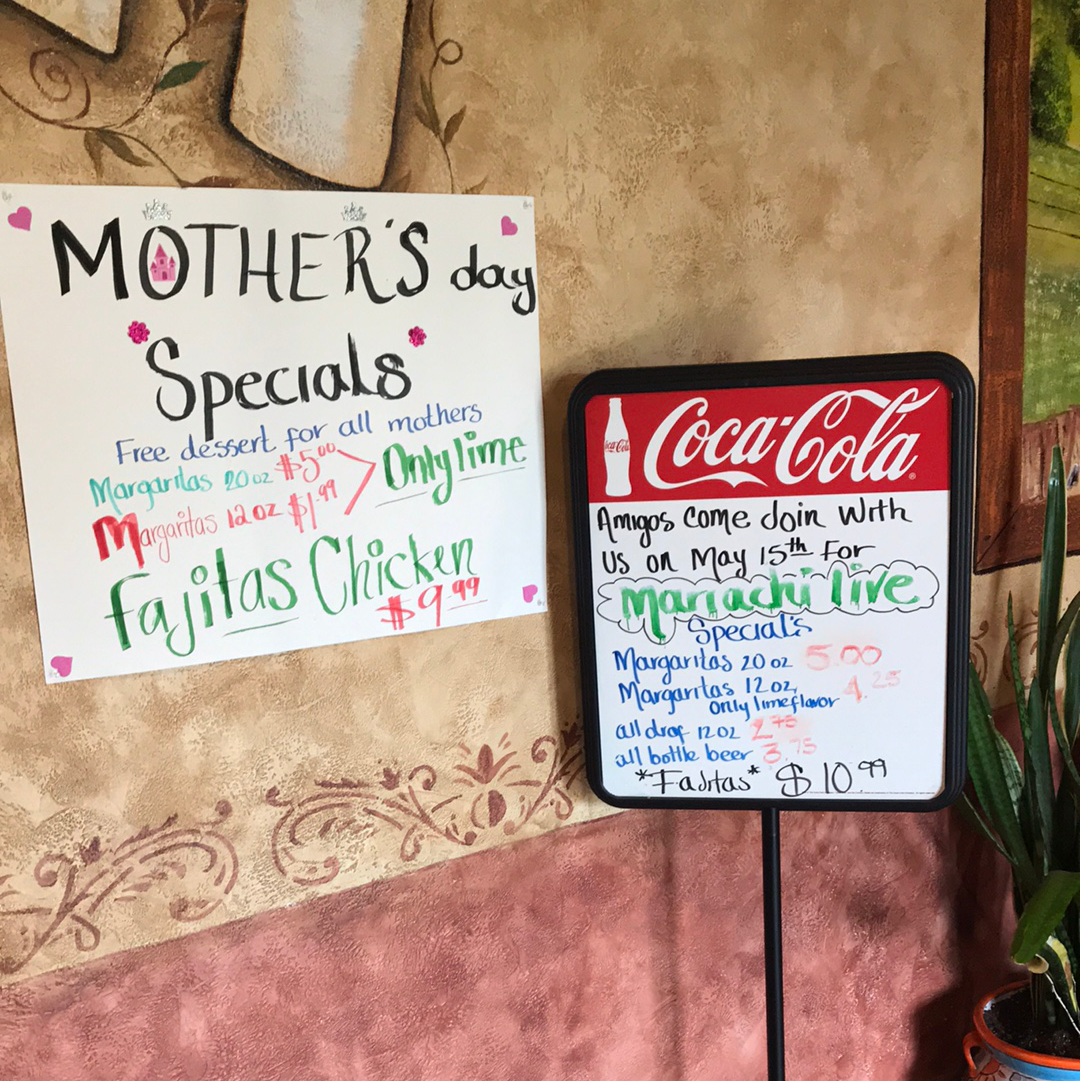 MOTHER'S day
Specials
Free dessert for all mothers
Margaritas 20 oz $5.00
Only lime
Margaritas 12 oz $1.99
Fajitas Chicken
$9.99
Coca-Cola
Coca-Cola
Amigos come Join With
Us on May 15th For
Mariachi live
Special's
Margaritas 20 oz 5.00
Margaritas 12 oz, 4.25
only lime flavor
all draf 12 oz 2.75
all bottle beer 3.75
*Fajitas* $10.99